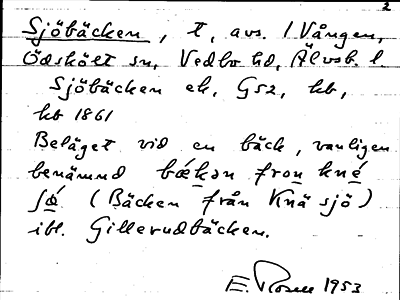 2
Sjöbäcken, t, avs. / Vången,
Ödskölt sn, Vedbo hd, Älvsb. l.
Sjöbäcken ek, G52, hb,
hb 1861
Beläget vid en bäck, vanligen
benämnd bǽkən fron kné
ʃǿ (Bäcken från Knä sjö)
ibl. Gillerudbäcken.
E. Rosell 1953